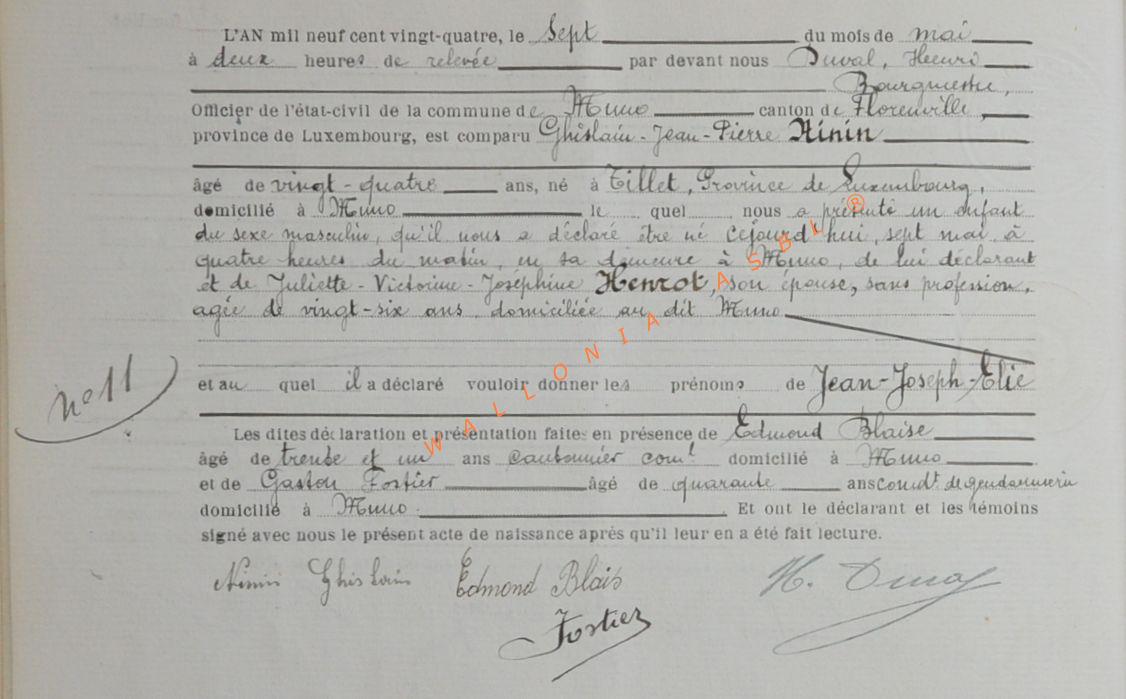 L'AN mil neuf cent vingt-quatre, le Sept du mois de mai
à deux heures de relevée par devant nous Duval, Henri
Bourgmestre,
Officier de l'état-civil de la commune de Muno canton de Florenville,
province de Luxembourg, est comparu Ghislain-Jean-Pierre Ninin
âgé de vingt-quatre ans, né à Tillet, Province de Luxembourg,
domicilié à Muno le quel nous a présenté un enfant
du sexe masculin, qu'il nous a déclaré être né cejourd'hui, sept mai, à
quatre heures du matin, en sa demeure à Muno, de lui déclarant
et de Juliette-Victorine-Joséphine Henrot, son épouse, sans profession,
agée de vingt-six ans domiciliée au dit Muno
et au quel il a déclaré vouloir donner les prénoms de Jean-Joseph-Elie
n° 11
Les dites déclaration et présentation faites en présence de Edmond Blaise
âgé de trente et un ans cantonnier coml domicilié à Muno
et de Gaston Fortier âgé de quarante ans comdt de gendarmerie
domicilié à Muno. Et ont le déclarant et les témoins
signé avec nous le présent acte de naissance après qu'il leur en a été fait lecture.
Ninin Ghislain Edmond Blais H. Duval
Fortier
WALLONIA ASBL ®